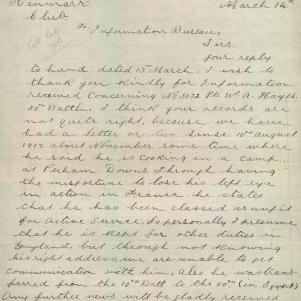 Kenmark
March 14th
Club.
To Information Bureau,
Sirs.
your reply
to hand, dated 13th March, I wish to
thank you kindly for Information
received Concerning No 3032 Pte W. A. Hayes.
50th Battn. I think your records are
not quite right, because we have
had a letter or two sinse 10th august
1917 about November some time where
he said he is cooking in a camp
at Perham Downs. Through having
the misfortune to lose his left eye
in action in France, he states
that he has been classed as unfit
for Active Service. So personally I presume
that he is kept for other duties in
England, but through not knowing
his right address, we are unable to get
Communication with him, Also he was trans-
ferred from the 10th Batt to the 50th (in Egypt)
Any further news will be gladly received